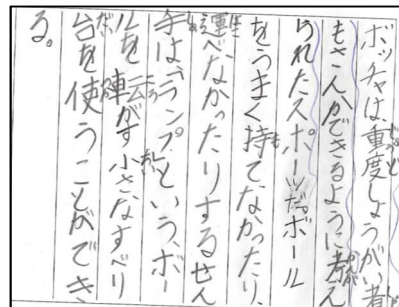 ボッチャは、重度しょうがい者
もさんかできるように考え
られたスポーツだ。ボール
をうまく持てなかったり、
運べなかったりするせん
手は、「ランプ」という、ボー
ルを転がす小さなすべり
台を使うことができ
る。